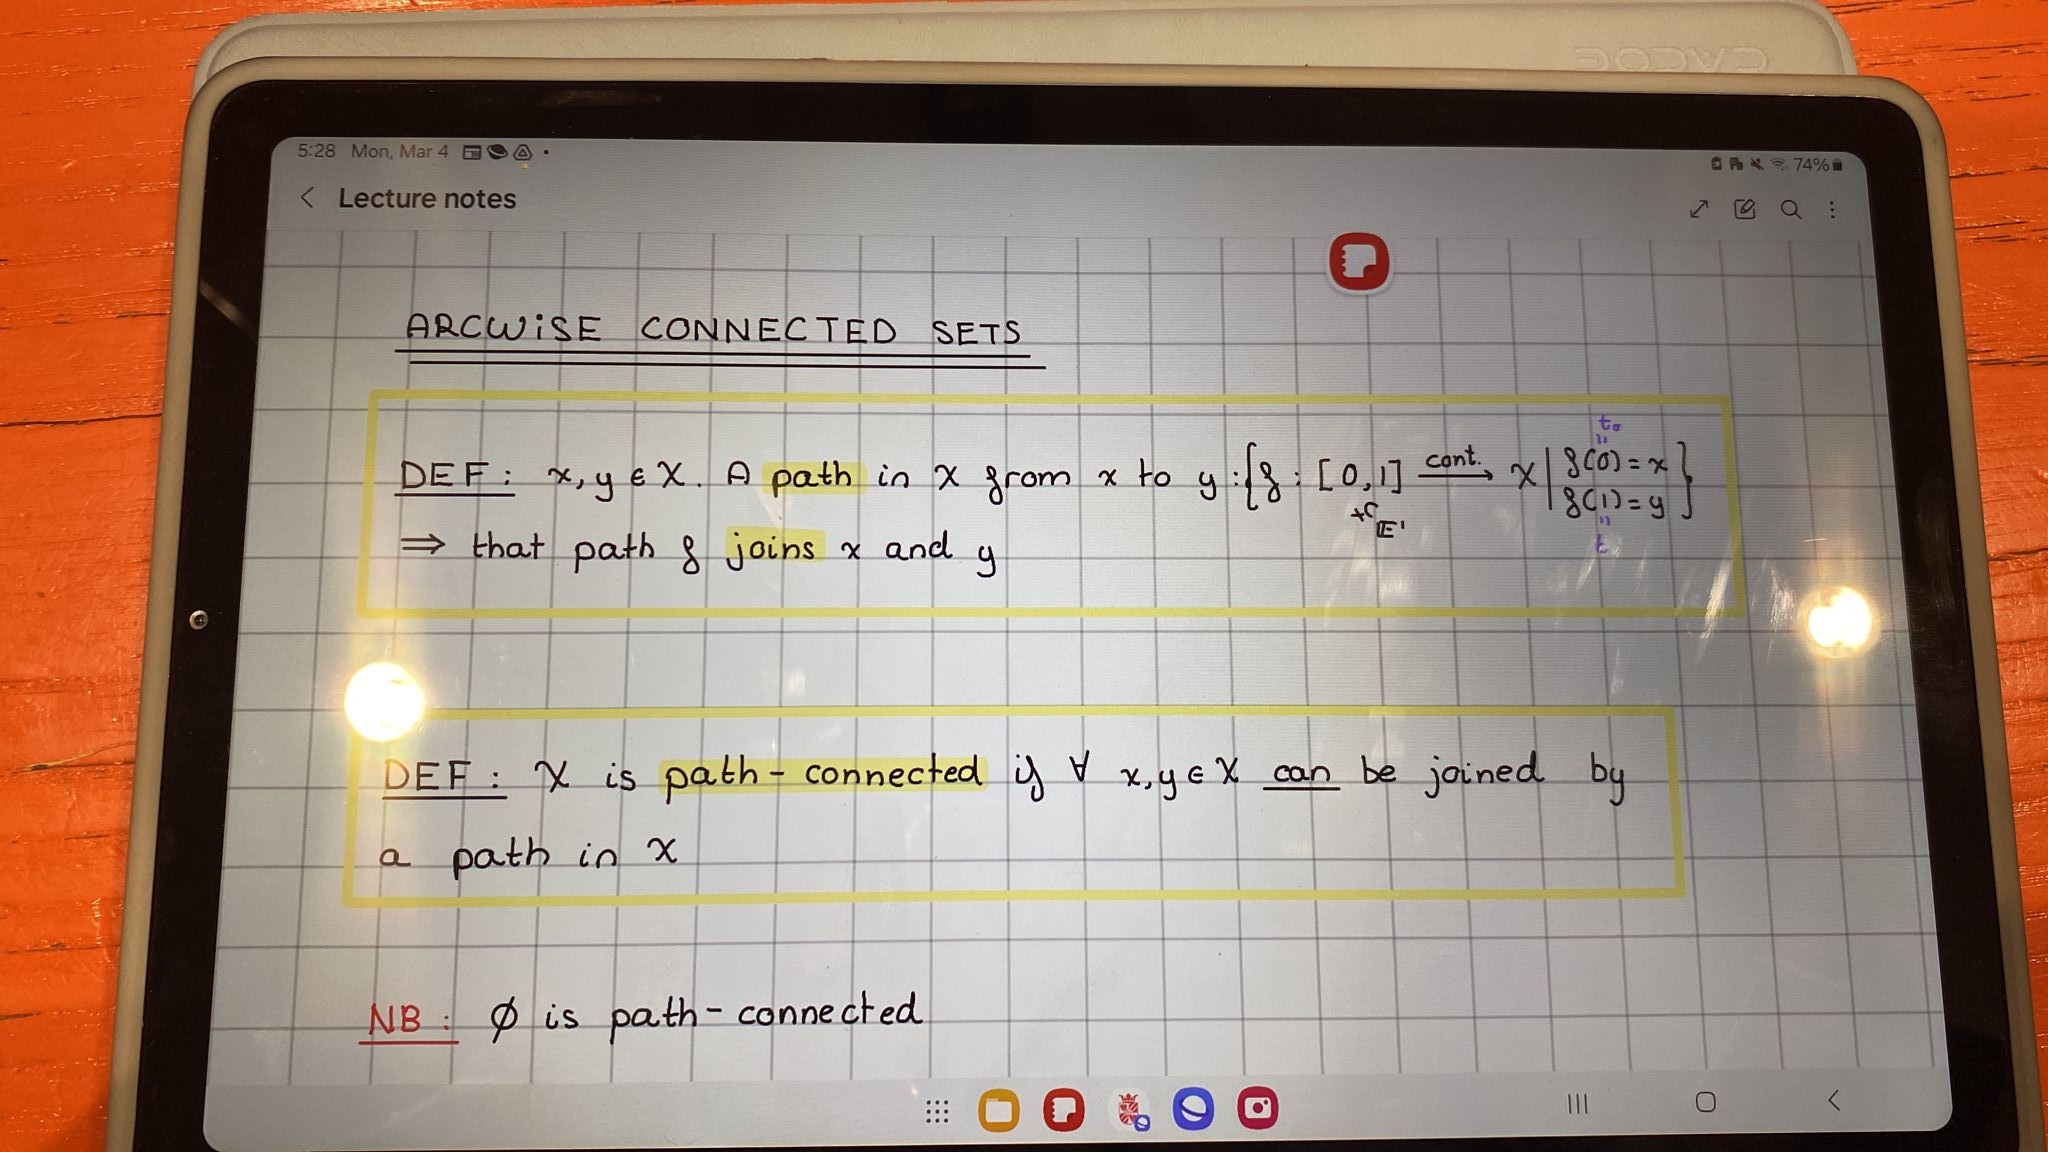 5:28 Mon, Mar 4
74%
Lecture notes
ARCWiSE CONNECTED SETS
t₀
"
DEF: x, y ∈ X. A path in X from x to y : {f : [0,1] cont.→ X | f(0) = x
f(1) = y }
"
t
E¹
⇒ that path f joins x and y
DEF: X is path-connected if ∀ x, y ∈ X can be joined by
a path in X
NB: ∅ is path-connected